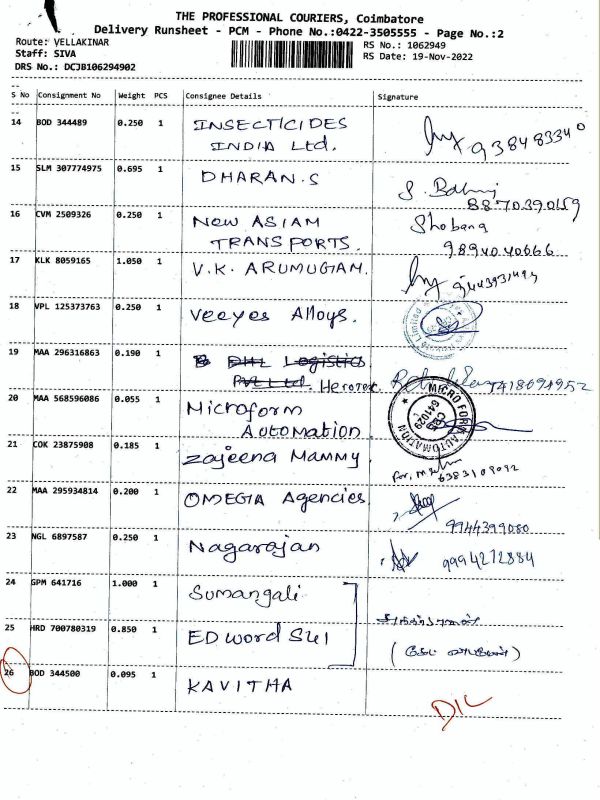 THE PROFESSIONAL COURIERS, Coimbatore
Delivery Runsheet - PCM - Phone No.:0422-3505555 - Page No.:2
Route: VELLAKINAR
Staff: SIVA
DRS No.: DCJB106294902
RS No.: 1062949
RS Date: 19-Nov-2022
S No Consignment No Weight PCS Consignee Details Signature
14 BOD 344489 0.250 1 INSECTICIDES
INDIA Ltd.
15 SLM 307774975 0.695 1 DHARAN.S
8870390159
16 CVM 2509326 0.250 1 New ASIAM Shobana
TRANSPORTS. 9894040666
17 KLK 8059165 1.050 1 V.K. ARUMUGAM.
18 VPL 125373763 0.250 1 Veeyes Alloys.
19 MAA 296316863 0.190 1 DHL Logistics
Pvt Ltd.
20 MAA 568596086 0.055 1 Microform
Automation
MICRO FORM AUTOMATION
CBE
641029
21 COK 23875908 0.185 1 Zajeena Mammy
6383109092
22 MAA 295934814 0.200 1 OMEGA Agencies
9944399080
23 NGL 6897587 0.250 1 Nagarajan 9994272884
24 GPM 641716 1.000 1 Sumangali
25 HRD 700780319 0.850 1 EDword
26 BOD 344500 0.095 1 KAVITHA